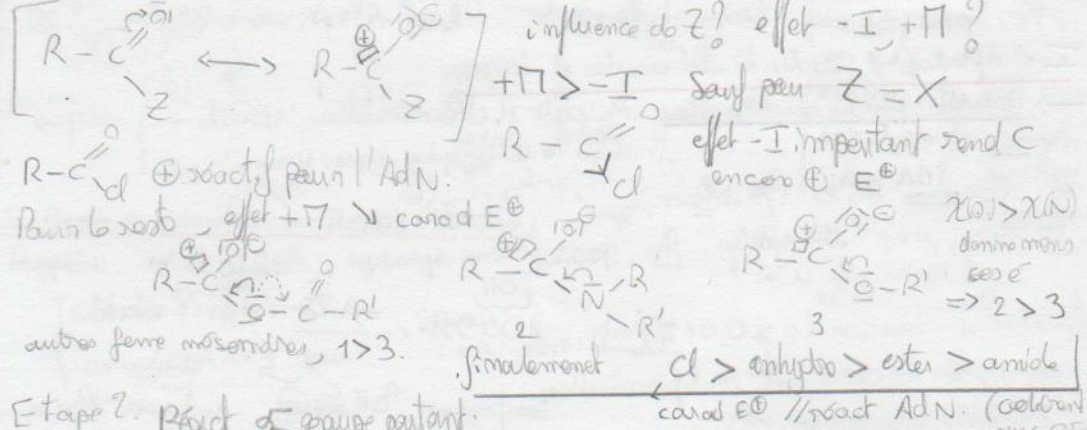 influence de Z? effet -I, +M?
R - C Z ⟷ R - C ⊕ Z
+M > -I Sauf pour Z = X
R - C O Cl effet -I important rend C
encore ⊕ E⊕
R - C O Cl ⊕ réactif pour l'AdN.
Pour le reste, effet +M ↘ caract E⊕
R - C - O - C - R'
R - C - N R R'
R - C - O - R'
χ(O) > χ(N)
donne moins
ses é
=> 2 > 3
autres forme mésomères, 1 > 3.
2
3
finalement Cl > anhydre > ester > amide
caract E⊕ // réact AdN.
Etape 2. Réact groupe partant.